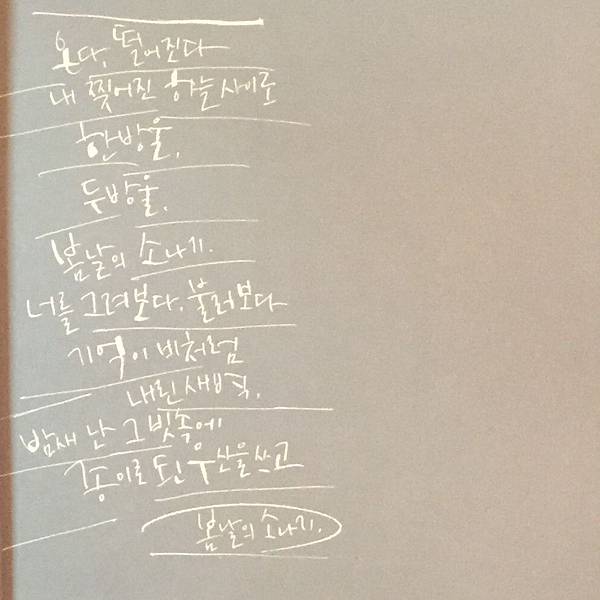 온다, 떨어진다
내 찢어진 하늘 사이로
한방울,
두방울,
봄날의 소나기.
너를 그려보다, 불러보다
기억이 비처럼
내린 새벽,
밤새 난 그 빗속에
종이로 된 우산을 쓰고
봄날의 소나기.